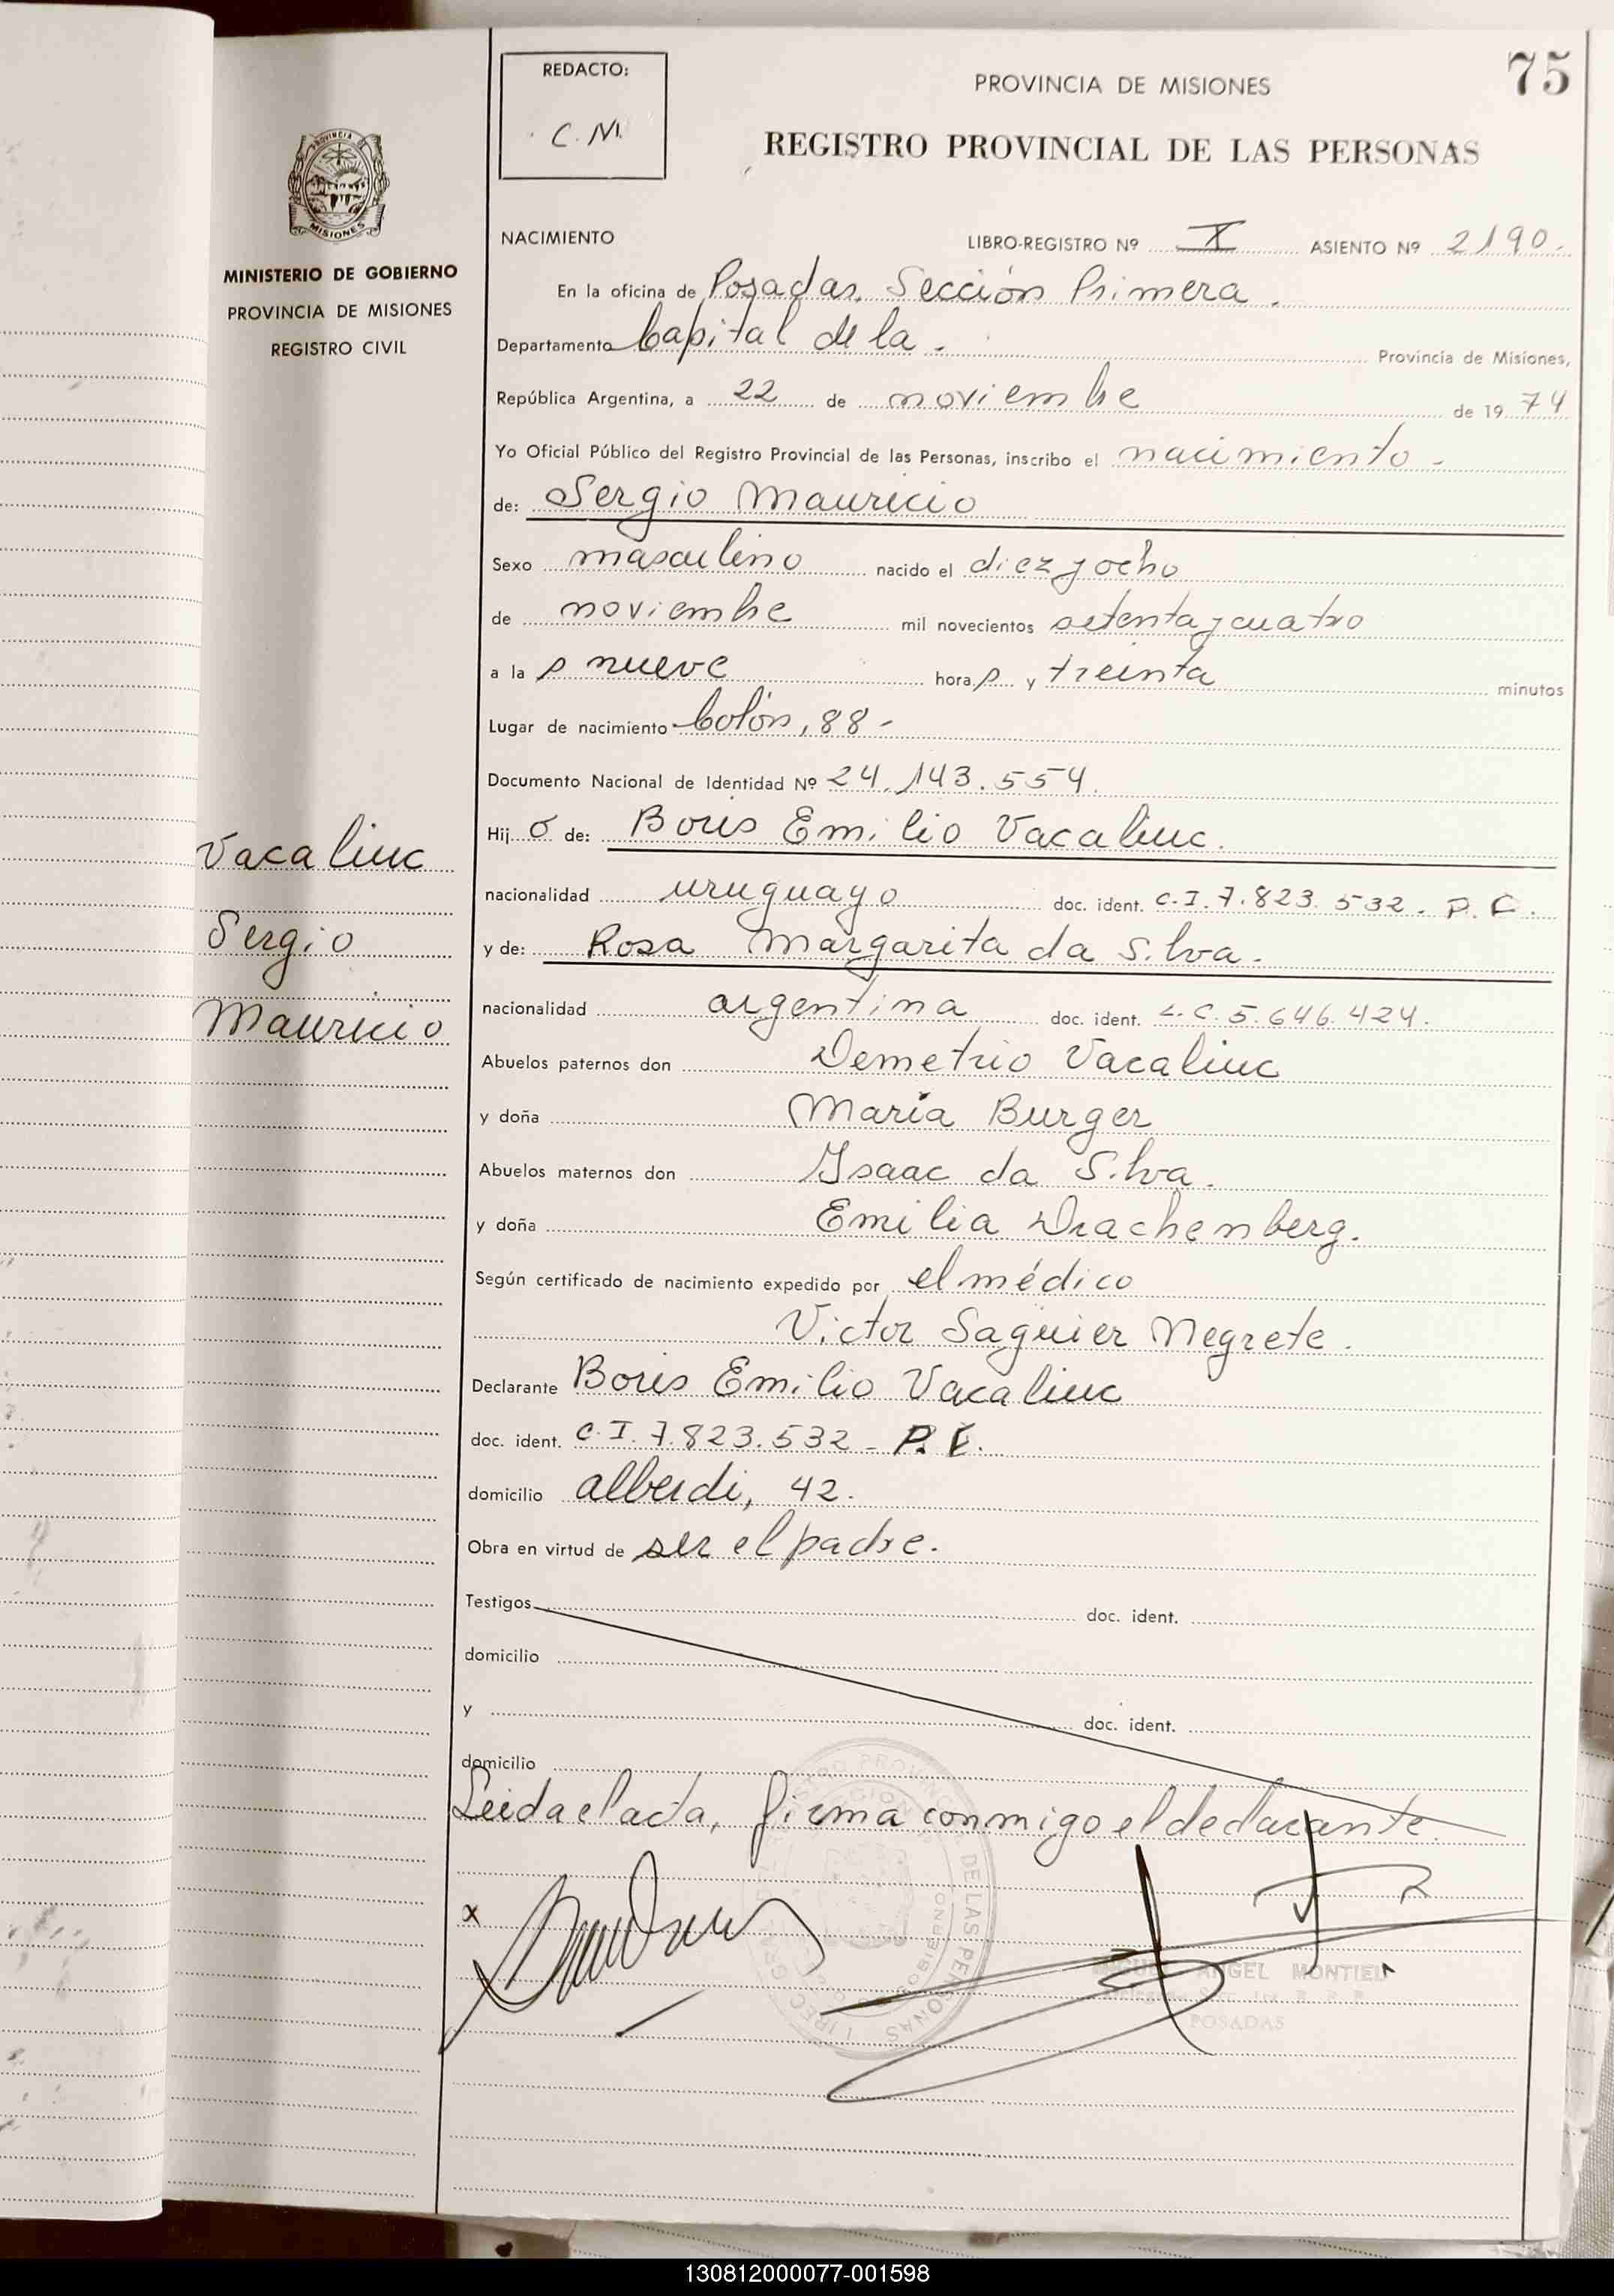 75
REDACTO:
C. M.
PROVINCIA DE MISIONES
REGISTRO PROVINCIAL DE LAS PERSONAS
PROVINCIA
MISIONES
MINISTERIO DE GOBIERNO
PROVINCIA DE MISIONES
REGISTRO CIVIL
NACIMIENTO LIBRO-REGISTRO Nº X ASIENTO Nº 2190.
En la oficina de Posadas. Sección Primera.
Departamento Capital de la. Provincia de Misiones,
República Argentina, a 22 de noviembre de 19 74
Yo Oficial Público del Registro Provincial de las Personas, inscribo el nacimiento -
de: Sergio Mauricio
Sexo masculino nacido el diez y ocho
de noviembre mil novecientos setenta y cuatro
a la s nueve hora s y treinta minutos
Lugar de nacimiento Colón, 88 -
Documento Nacional de Identidad Nº 24.143.554.
Hij o de: Boris Emilio Vacaliuc.
nacionalidad uruguayo doc. ident. C.I. 7.823.532. P. F.
y de: Rosa Margarita da Silva.
nacionalidad argentina doc. ident. L.C. 5.646.424.
Abuelos paternos don Demetrio Vacaliuc
y doña María Burger
Abuelos maternos don Isaac da Silva.
y doña Emilia Drachenberg.
Según certificado de nacimiento expedido por el médico
Victor Saguier Negrete.
Declarante Boris Emilio Vacaliuc
doc. ident. C.I. 7.823.532 - P. F.
domicilio alberdi, 42.
Obra en virtud de ser el padre.
Testigos doc. ident.
domicilio
y doc. ident.
domicilio
Leida el acta, firma conmigo el declarante.
x
MIGUEL ANGEL MONTIEL
POSADAS
Vacaliuc
Sergio
Mauricio
130812000077-001598